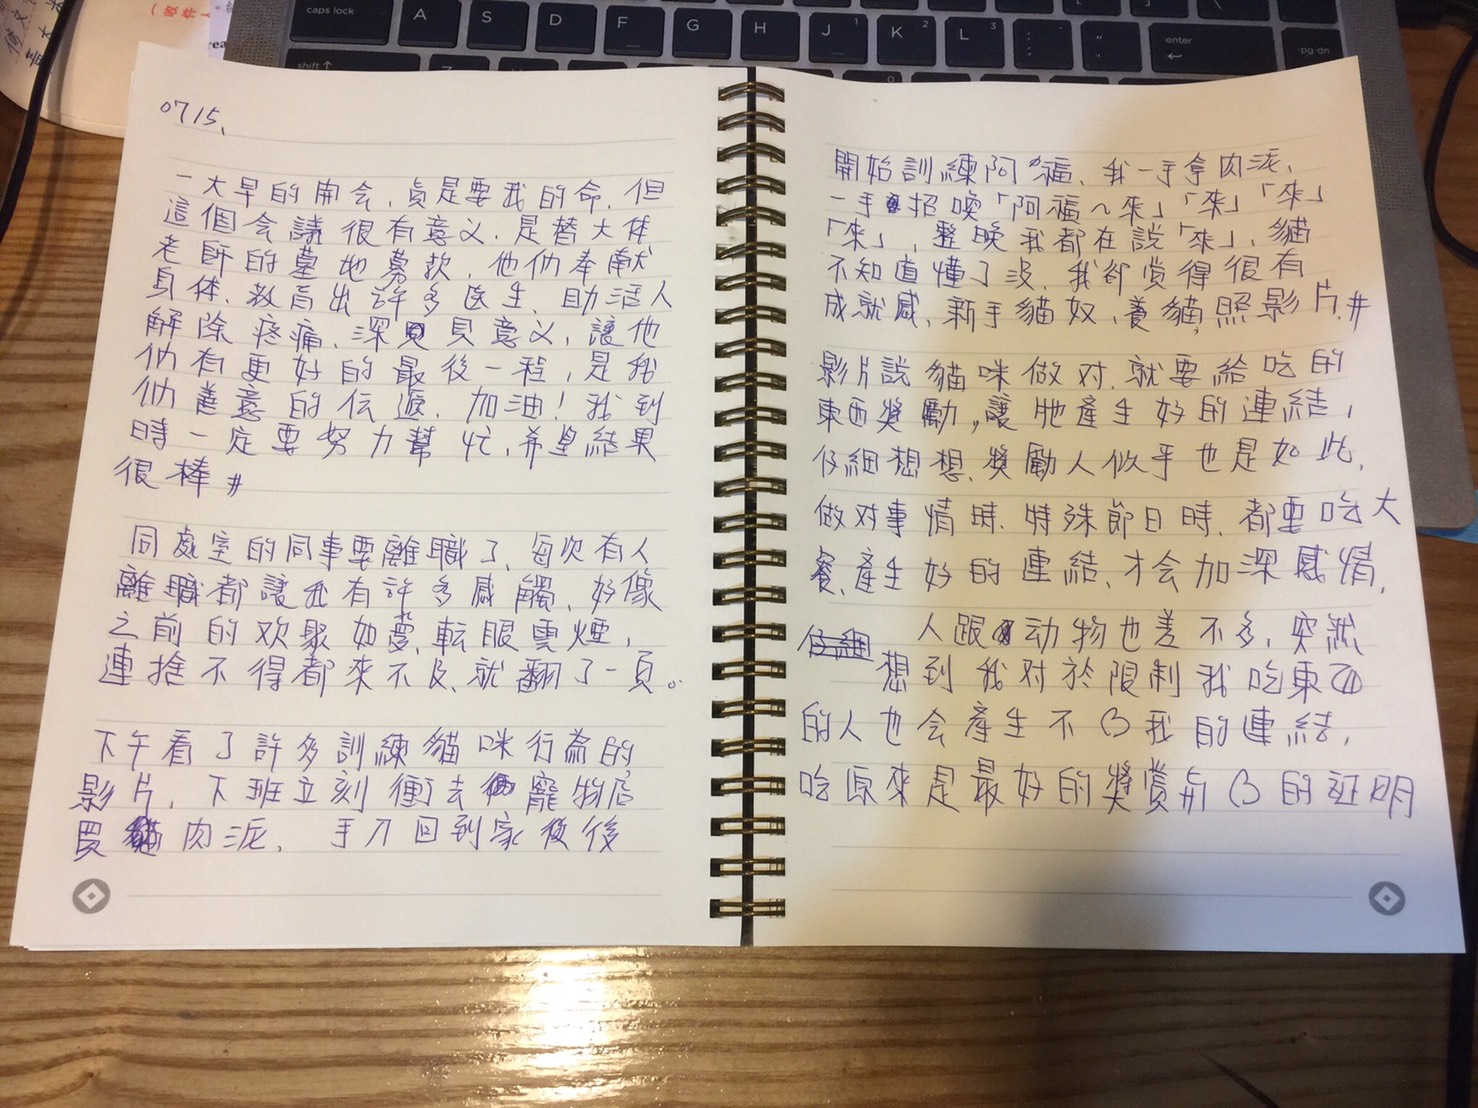 caps lock
A
S
D
F
G
H
J
K
L
enter
pg dn
shift ↑
0715、
一大早的開会，真是要我的命，但
這個会議很有意义，是替大体
老師的墓地募款，他们奉献
身体，教育出許多医生，助活人
解除疼痛，深具意义，讓他
们有更好的最後一程，是我
们善意的伝遞，加油！我到
時一定要努力幫忙，希望結果
很棒#
同處室的同事要離職了，每次有人
離職都讓我有許多感觸，好像
之前的欢聚如夢，転眼雲煙，
連捨不得都來不及，就翻了一頁。
下午看了許多訓練貓咪行為的
影片，下班立刻衝去寵物店
買貓肉泥，手刀回到家後
開始訓練阿福，我一手拿肉泥，
一手招喚「阿福～來」「來」「來」
「來」，整晚我都在説「來」，貓
不知道懂了沒，我卻覚得很有
成就感，新手貓奴，養貓，照影片.#
影片說貓咪做对，就要給吃的
東西獎勵，讓牠產生好的連結，
仔細想想，獎勵人似乎也是如此，
做对事情時，特殊節日時，都要吃大
餐，產生好的連結，才会加深感情，
人跟动物也差不多，突然
想到我对於限制我吃東西
的人也会產生不心我的連結，
吃原來是最好的獎賞与心的証明